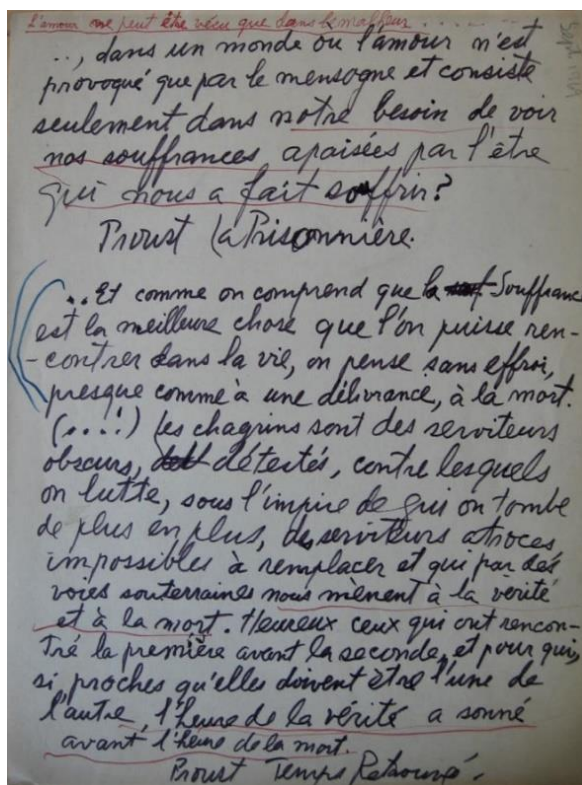 L'amour ne peut être vécu que dans le malheur . . . . . . . .
..., dans un monde où l'amour n'est
provoqué que par le mensonge et consiste
seulement dans notre besoin de voir
nos souffrances apaisées par l'être
qui nous a fait souffrir?
Proust La Prisonnière.
... Et comme on comprend que la Souffrance
est la meilleure chose que l'on puisse ren-
-contrer dans la vie, on pense sans effroi,
presque comme à une délivrance, à la mort.
(...!) les chagrins sont des serviteurs
obscurs, détestés, contre lesquels
on lutte, sous l'empire de qui on tombe
de plus en plus, des serviteurs atroces
impossibles à remplacer et qui par des
voies souterraines nous mènent à la vérité
et à la mort. Heureux ceux qui ont rencon-
tré la première avant la seconde, et pour qui,
si proches qu'elles doivent être l'une de
l'autre, l'heure de la vérité a sonné
avant l'heure de la mort.
Proust Temps Retrouvé.